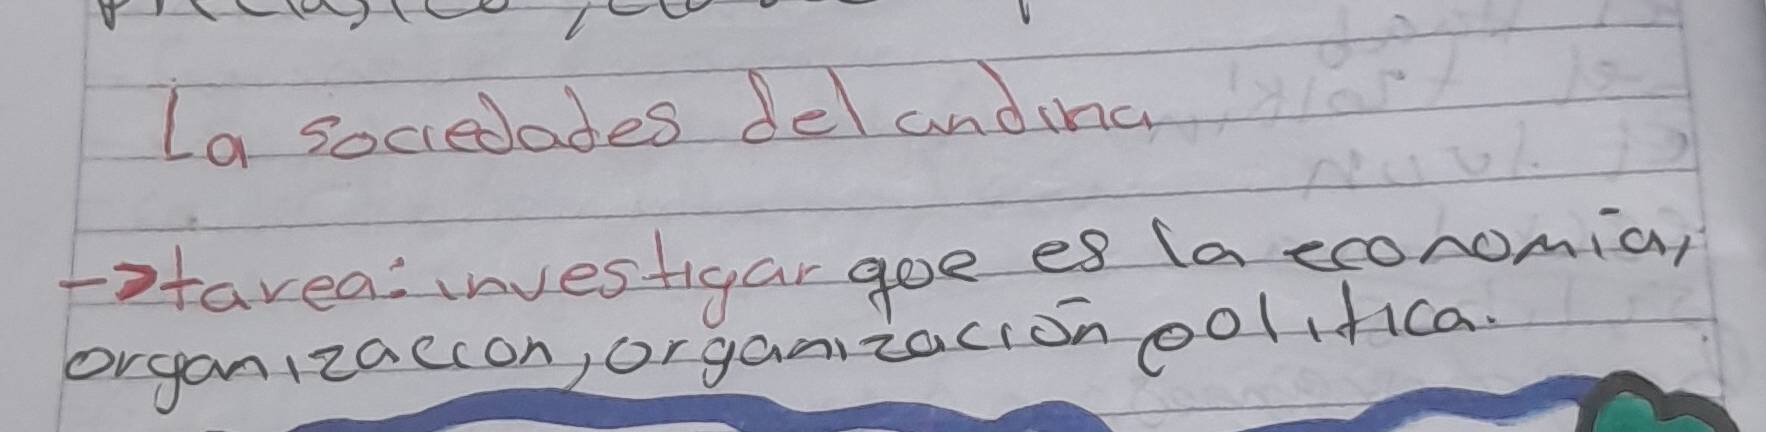 La sociedades del andina
→tarea: investigar que es la economia,
organizaccon, organización politica.